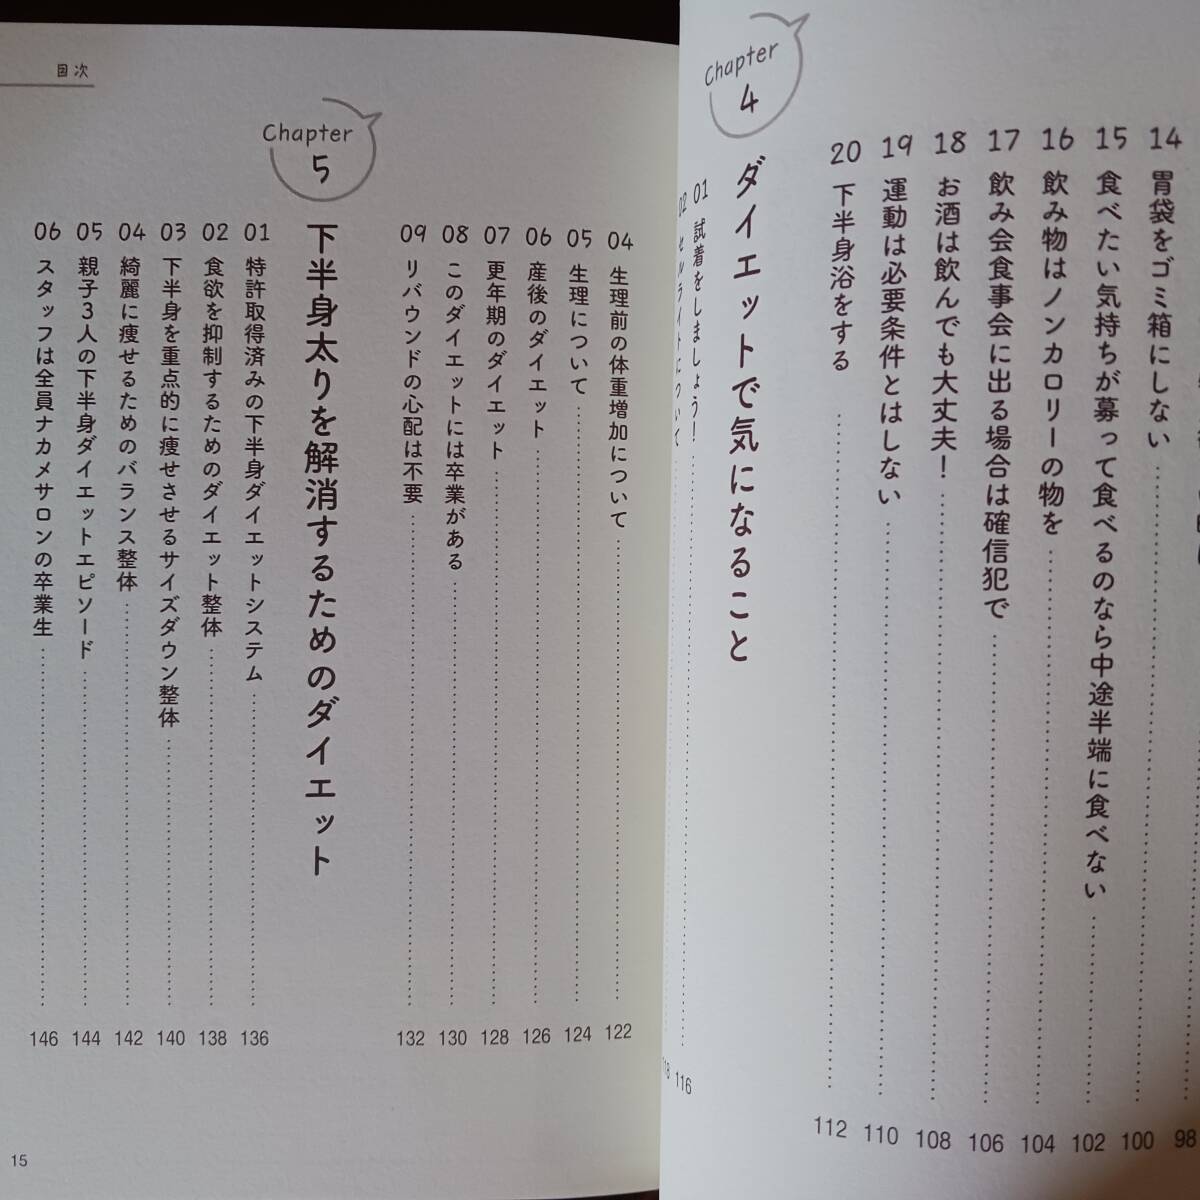 98
14 胃袋をゴミ箱にしない 100
15 食べたい気持ちが募って食べるのなら中途半端に食べない 102
16 飲み物はノンカロリーの物を 104
17 飲み会食事会に出る場合は確信犯で 106
18 お酒は飲んでも大丈夫! 108
19 運動は必要条件とはしない 110
20 下半身浴をする 112
Chapter 4
ダイエットで気になること
01 試着をしましょう! 116
02 セルライトについて
04 生理前の体重増加について 122
05 生理について 124
06 産後のダイエット 126
07 更年期のダイエット 128
08 このダイエットには卒業がある 130
09 リバウンドの心配は不要 132
Chapter 5
下半身太りを解消するためのダイエット
01 特許取得済みの下半身ダイエットシステム 136
02 食欲を抑制するためのダイエット整体 138
03 下半身を重点的に痩せさせるサイズダウン整体 140
04 綺麗に痩せるためのバランス整体 142
05 親子3人の下半身ダイエットエピソード 144
06 スタッフは全員ナカメサロンの卒業生 146
目次
15